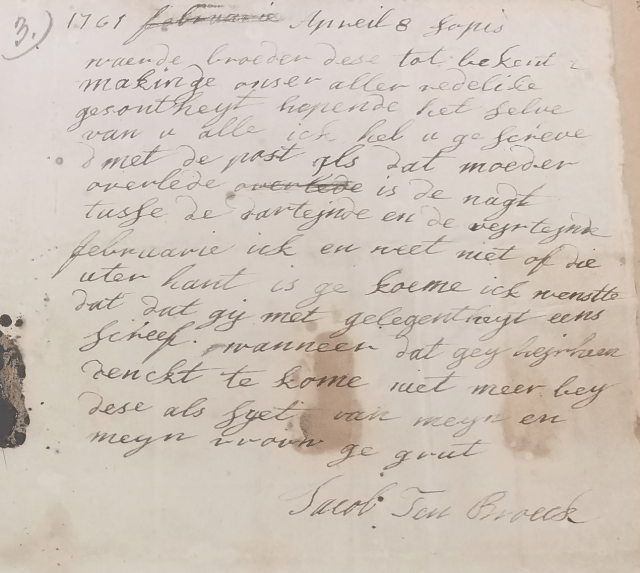 3.)
1769 februarie Apreil 8 Sopis
waerde broeder dese tot bekent =
makinge onser aller redelike
gesontheyt hopende het selve
van u alle ick heb u ge screve
met de post als dat moeder
overlede overlede is de nagt
tusse de dartejnde en de vejrtejnde
februarie ick en weet niet of die
uter hant is ge kome ick wenstte
dat dat gij met gelegentheyt eens
screef. wanneer dat gey hejrheen
denckt te kome niet meer bey
dese als syet van meyn en
meyn vrouw ge grut
Jacob Ten Broeck